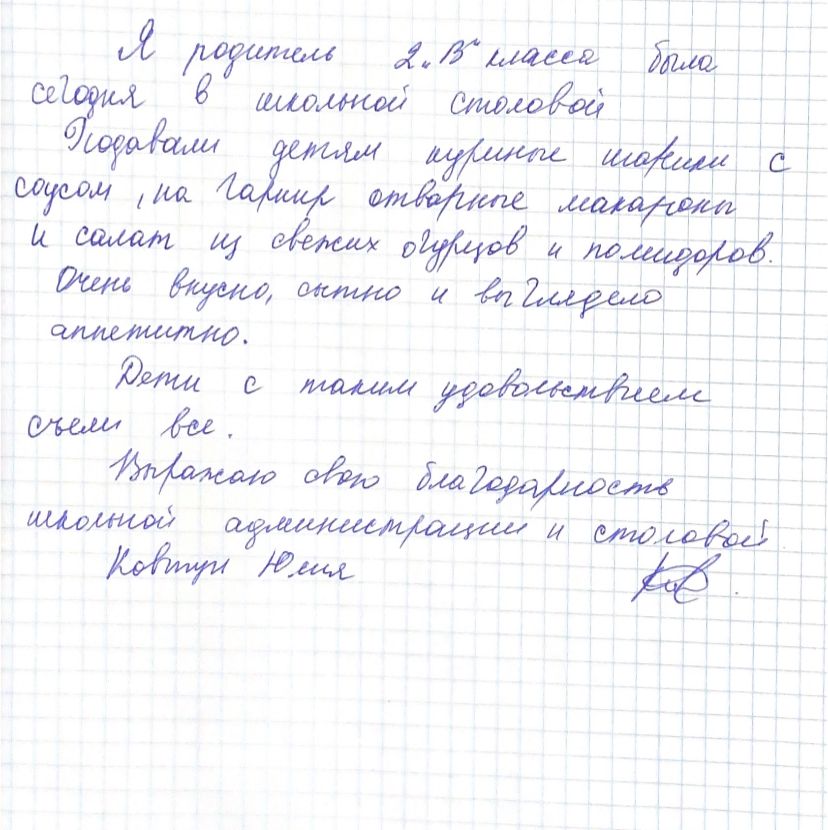 Я родитель 2 „В" класса была
сегодня в школьной столовой
Подавали детям куриные шарики с
соусом, на гарнир отварные макароны
и салат из свежих огурцов и помидоров.
Очень вкусно, сытно и выглядело
аппетитно.
Дети с таким удовольствием
съели все.
Выражаю свою благодарность
школьной администрации и столовой
Ковтун Юлия